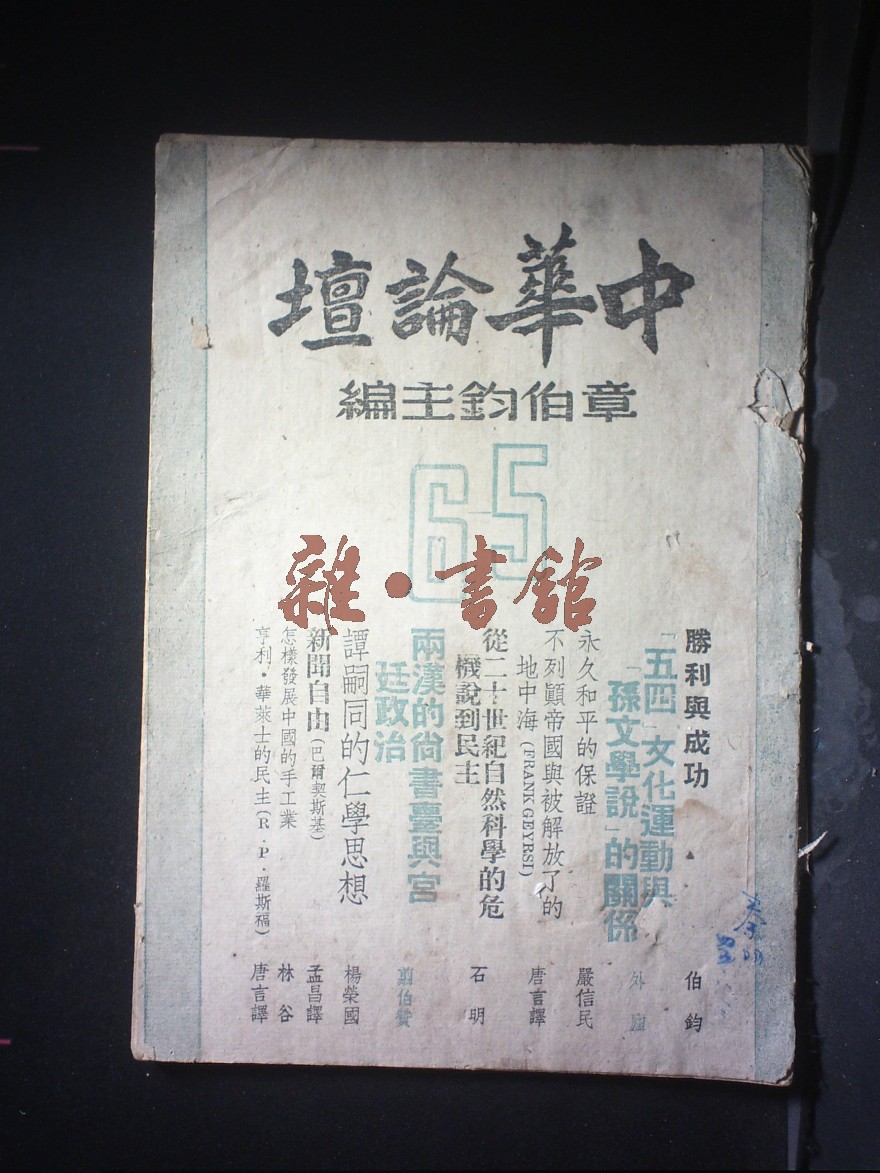 中華論壇
章伯鈞主編
5 6
雜·書舘
勝利與成功 伯鈞
「五四」文化運動與
「孫文學說」的關係 外廬
永久和平的保證 嚴信民
不列顛帝國與被解放了的
地中海(FRANK GEYRSI) 唐言譯
從二十世紀自然科學的危
機說到民主 石明
兩漢的尚書臺與宮
廷政治 翦伯贊
譚嗣同的仁學思想 楊榮國
新聞自由(巴爾契斯基) 孟昌譯
怎樣發展中國的手工業 林谷
亨利·華萊士的民主(R·P·羅斯福) 唐言譯